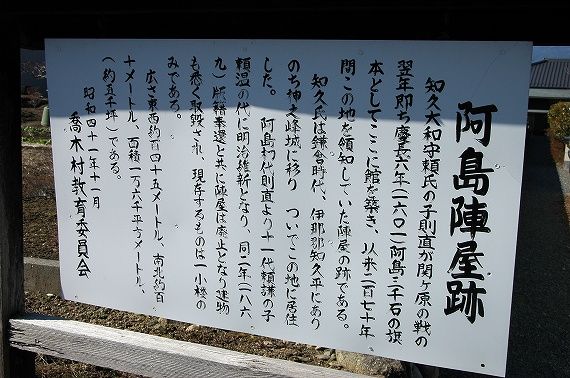 阿島陣屋跡
知久大和守頼氏の子則直が関ヶ原の戦の
翌年即ち慶長六年(一六〇一)阿島三千石の旗
本としてここに館を築き、以来二百七十年
間この地を領知していた陣屋の跡である。
知久氏は鎌倉時代、伊那郡知久平にあり
のち神之峰城に移り ついでこの地に居住
した。 阿島初代則直より十一代頼謙の子
頼温の代に明治維新となり、同二年(一八六
九)版籍奉還と共に陣屋は廃止となり建物
も悉く取毀され、現存するものは一小棧の
みである。
広さ東西約百四十五メートル、南北約百
十メートル、面積一万六千平方メートル、
(約五千坪)である。
昭和四十一年十一月
喬木村教育委員会